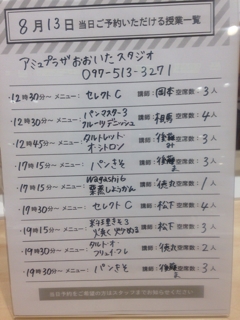 8月13日 当日ご予約いただける授業一覧
アミュプラザおおいたスタジオ
097-513-3271
・12時30分〜 メニュー: セレクトC 講師: 岡本 空席数: 3人
・12時30分〜 メニュー: パンマスター3 フルーツデニッシュ 講師: 相馬 空席数: 4人
・12時45分〜 メニュー: タルトレット・オ・シトロン 講師: 後藤 空席数: 3人
・17時15分〜 メニュー: パンきそ 講師: 後藤 空席数: 3人
・17時15分〜 メニュー: Wagashi6 講師: 徳丸 空席数: 1人
・19時30分〜 メニュー: セレクトC 講師: 松下 空席数: 4人
・19時30分〜 メニュー: 講師: 松下 空席数: 3人
・19時30分〜 メニュー: タルト・オ・フリュイ・フレ 講師: 徳丸 空席数: 2人
・19時30分〜 メニュー: パンきそ 講師: 後藤 空席数: 3人
当日予約をご希望の方はスタッフまでお知らせください